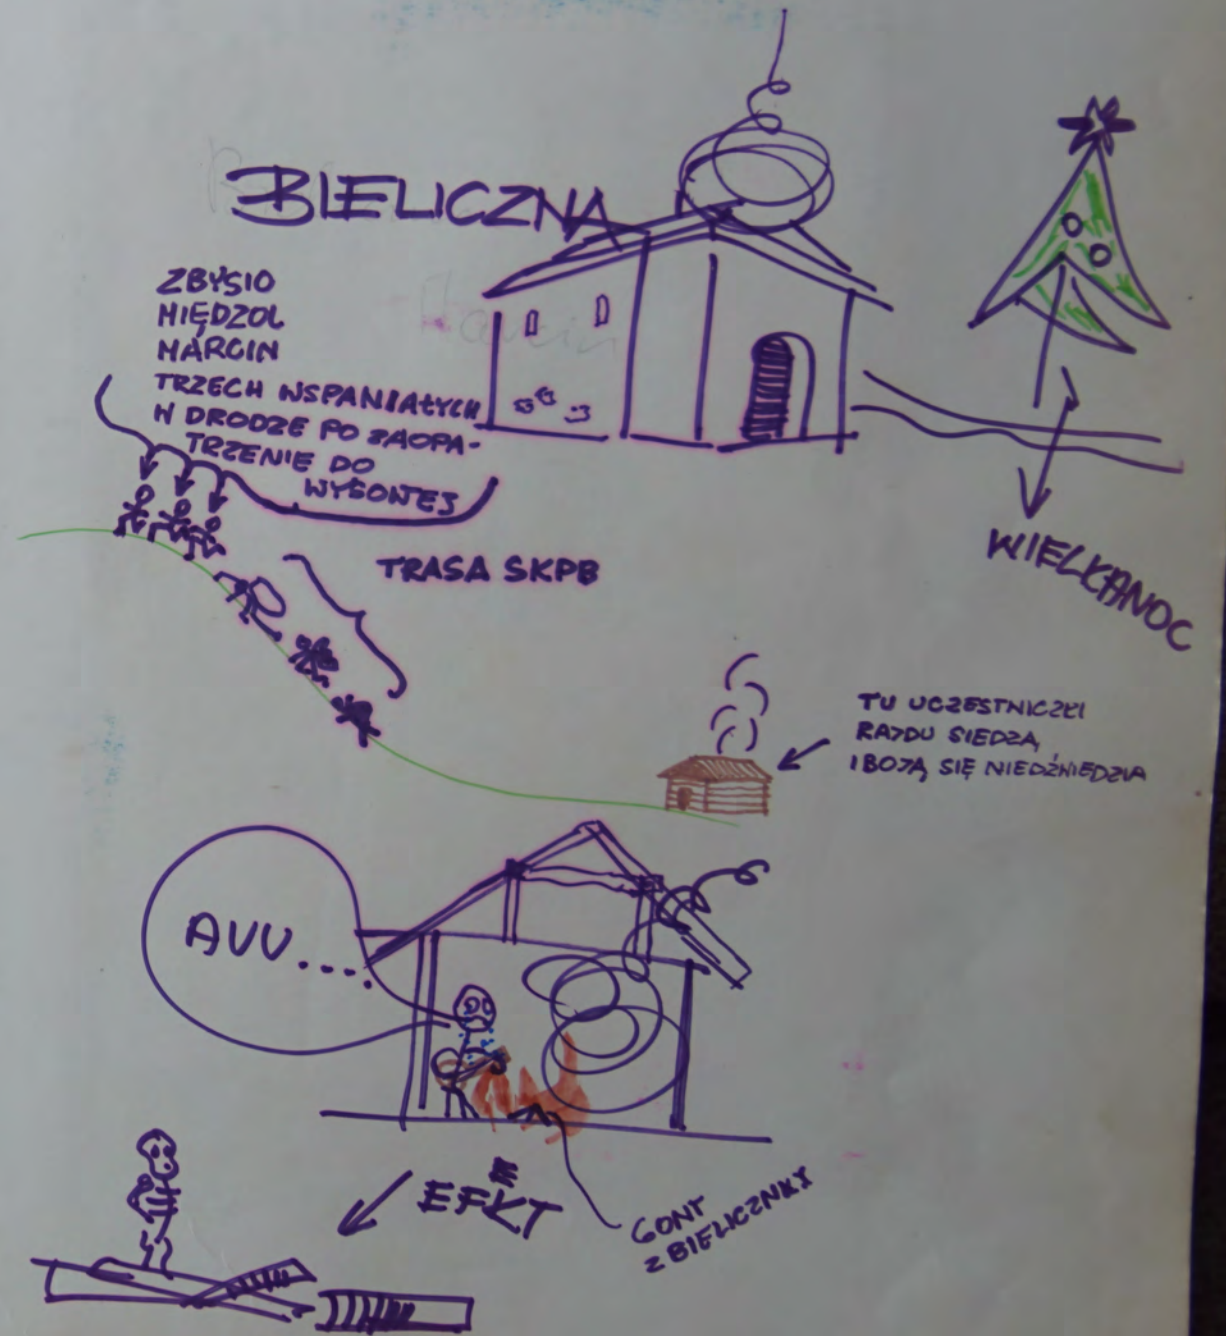 BIELICZNA
ZBYSIO
MIĘDZOL
MARCIN
TRZECH WSPANIAŁYCH
W DRODZE PO ZAOPA-
TRZENIE DO
WYSOWEJ
TRASA SKPB
WIELKANOC
TU UCZESTNICZKI
RAJDU SIEDZĄ
I BOJĄ SIĘ NIEDŹWIEDZIA
AUU....
EFEKT
GONT
Z BIELICZNKY